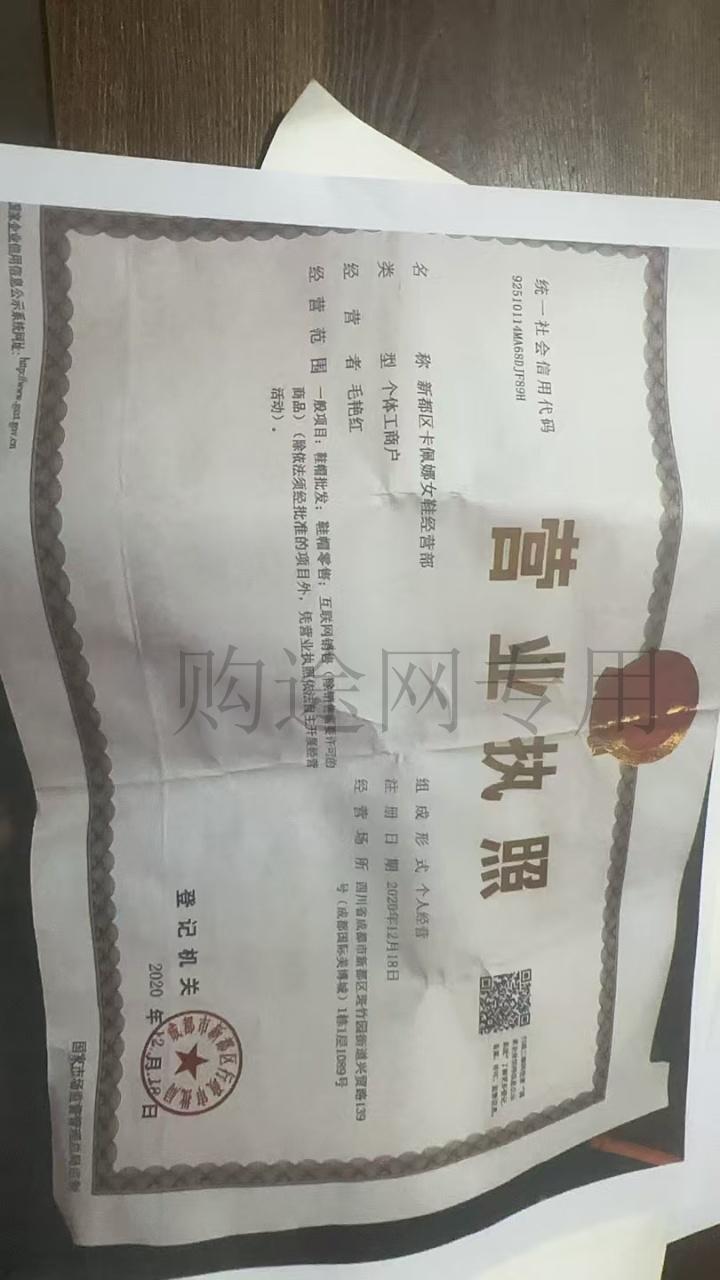 营业执照
统一社会信用代码
92510114MA68DJF89H
名称 新都区卡佩娜女鞋经营部
类型 个体工商户
经营者 毛艳红
经营范围 一般项目:鞋帽批发;鞋帽零售;互联网销售(除销售需要许可的
商品)(除依法须经批准的项目外,凭营业执照依法自主开展经营
活动)。
组成形式 个人经营
注册日期 2020年12月18日
经营场所 四川省成都市新都区斑竹园街道兴贸路139
号(成都国际美博城)1栋1层1089号
登记机关
2020 年12月18日
国家企业信用信息公示系统网址:http://www.gsxt.gov.cn
国家市场监督管理总局监制
购途网专用